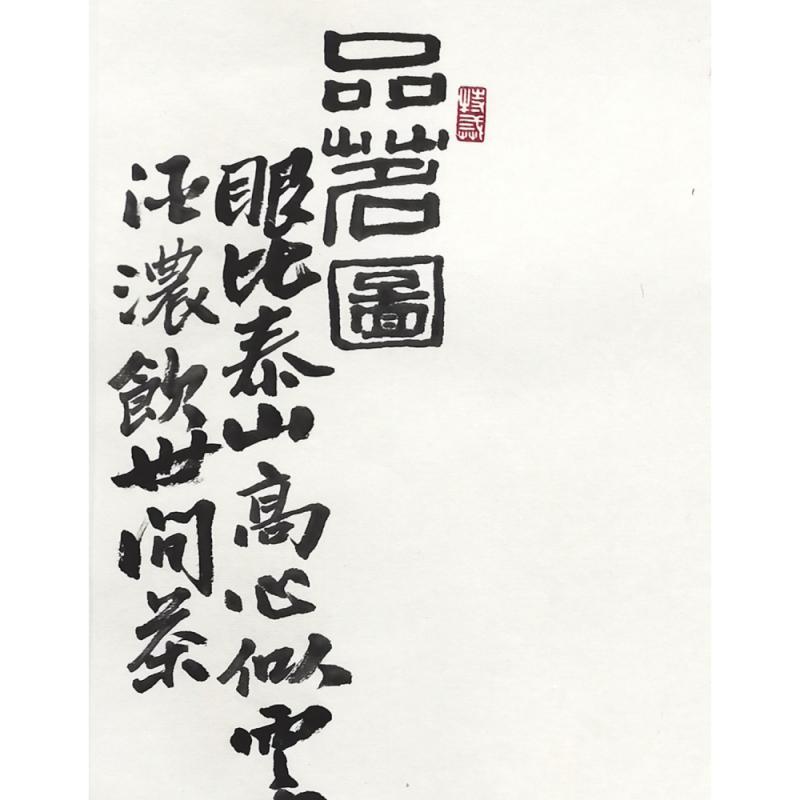 品茗圖
眼比泰山高心似雲
濃飲世間茶